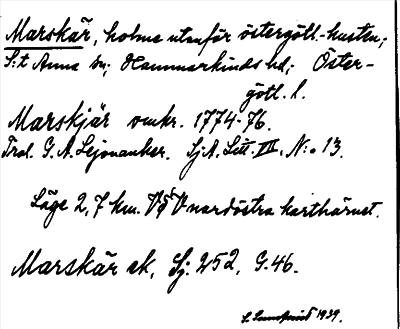 Marskär, holme utanför östergötl.-kusten;
S:t Anna sn; Hammarkinds hd; Öster-
götl. l.
Marskjär omkr. 1774-76.
Trol. G. A. Lejonanker. Sj.A. Litt. III, N:o 13.
Läge 2,7 km. V§V nordöstra karthörnet.
Marskär ek, Sj. 252, G.46.
1939.